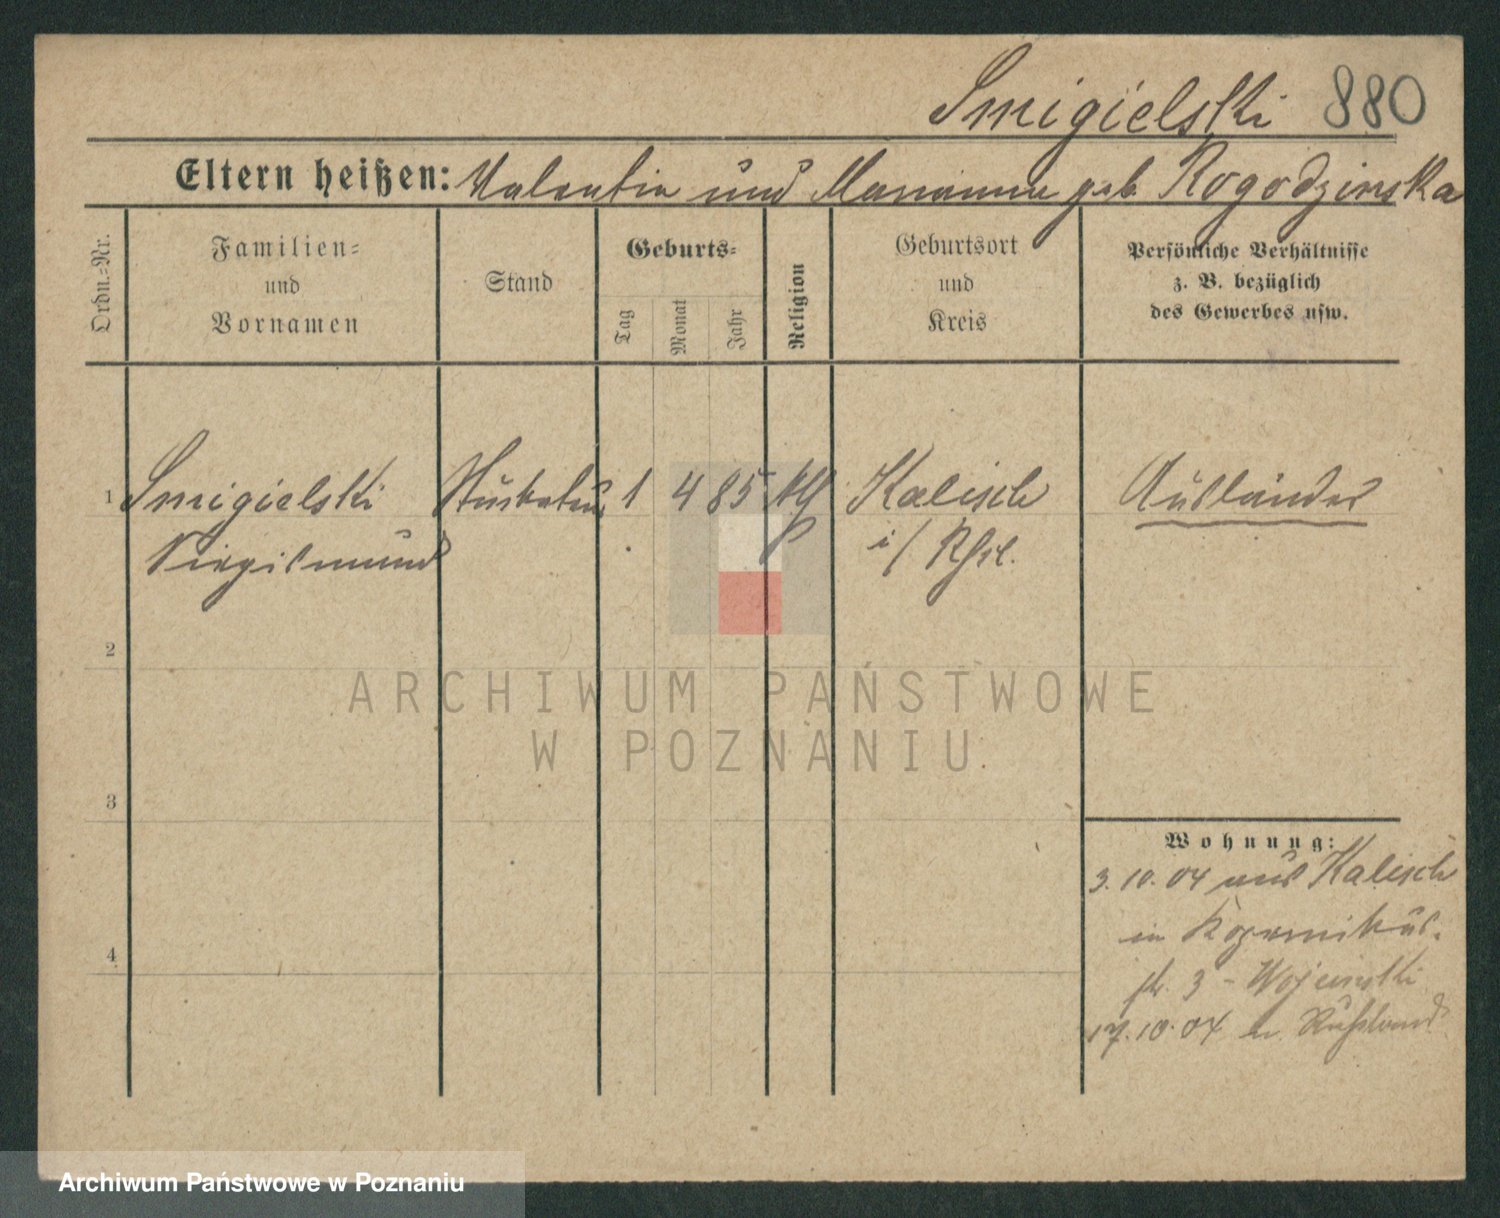 Smigielski 880
Eltern heißen: Valentin und Marianna geb. Rogodzinska
Ordn.-Nr.
Familien-
und
Vornamen
Stand
Geburts-
Tag
Monat
Jahr
Religion
Geburtsort
und
Kreis
Persönliche Verhältnisse
z. B. bezüglich
des Gewerbes usw.
1 Smigielski 1 4 85 kth Kalisch Ausländer
Siegismund i/ Rßl.
2
3
4
Wohnung:
3.10.04 aus Kalisch
in Kopernikus-
str. 3 -
17.10.04 n. Rußland
ARCHIWUM PAŃSTWOWE
W POZNANIU
Archiwum Państwowe w Poznaniu